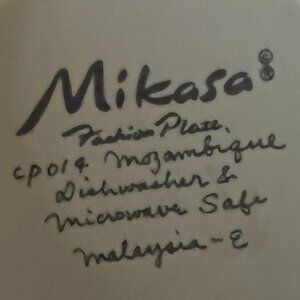 Mikasa
Fashion Plate.
CP014 Mozambique
Dishwasher &
Microwave Safe
Malaysia-E